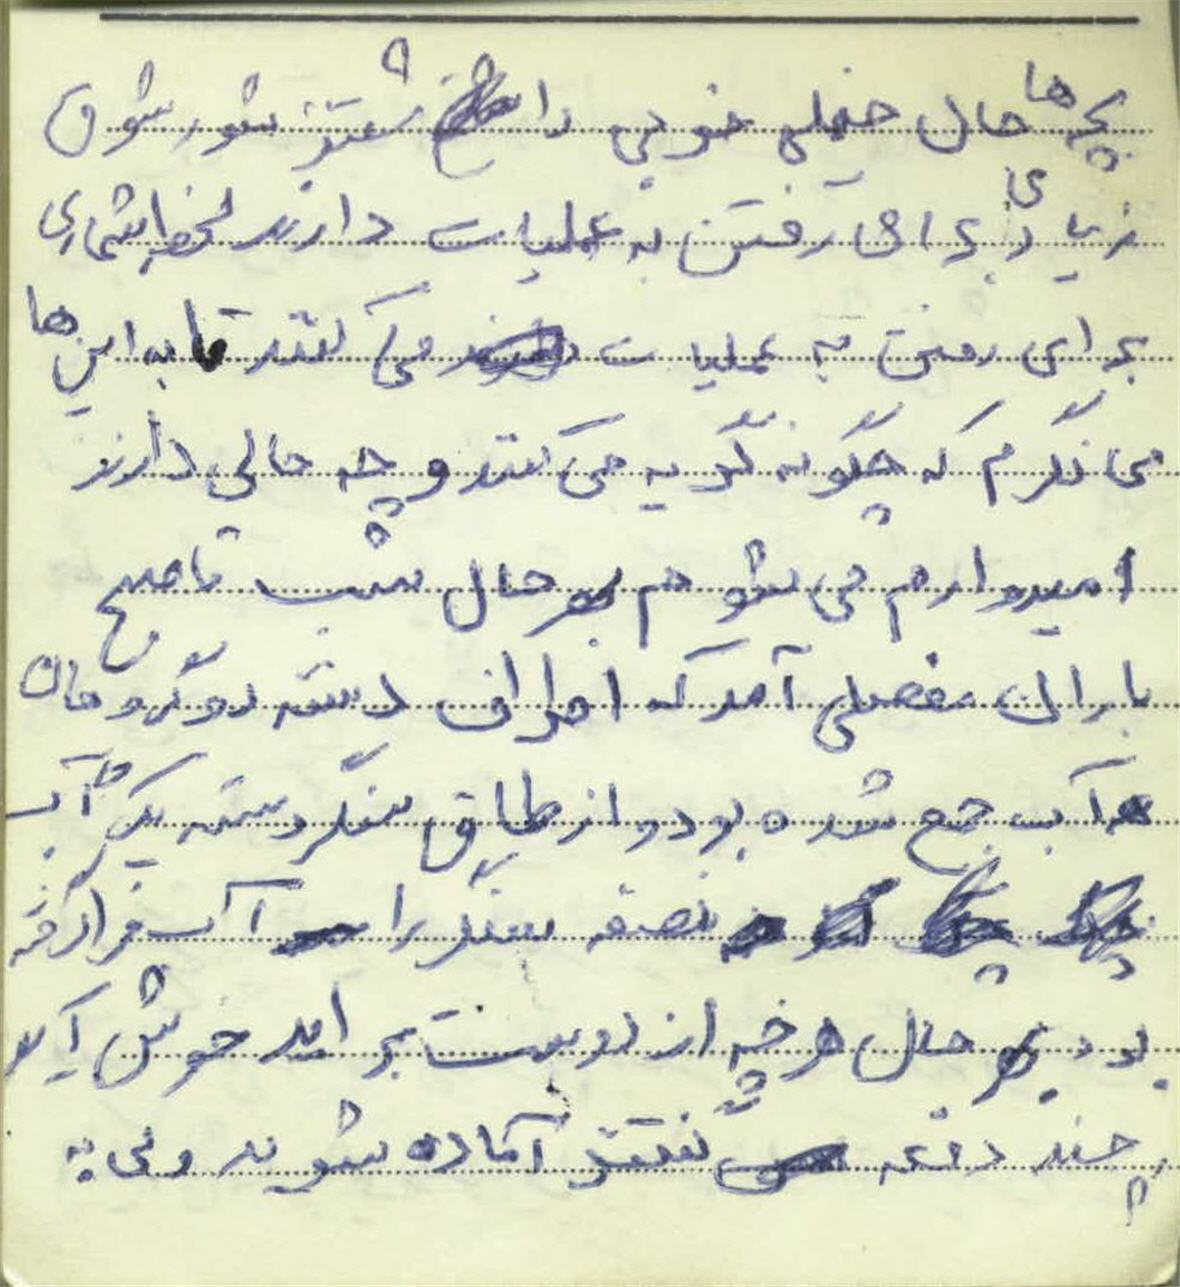 بچه ها حال خیلی خوبی داشتند شور شوق
زیادی برای رفتن به عملیات دارند لحظه شماری
برای رفتن به عملیات می کنند تا به این ها
می نگرم که چگونه گریه می کنند و چه حالی دارند
امیدوارم می شوم بهرحال شب تا صبح
باران مفصلی آمد که اطراف دسته دو گروهان
آب جمع شده بود و از طاق سنگر دسته یک آب
نصفه سنگر را آب فرا گرفته
بود بهر حال هرچه از دوست بر اید خوش آید
چند دفعه گفتند آماده شوید ولی به